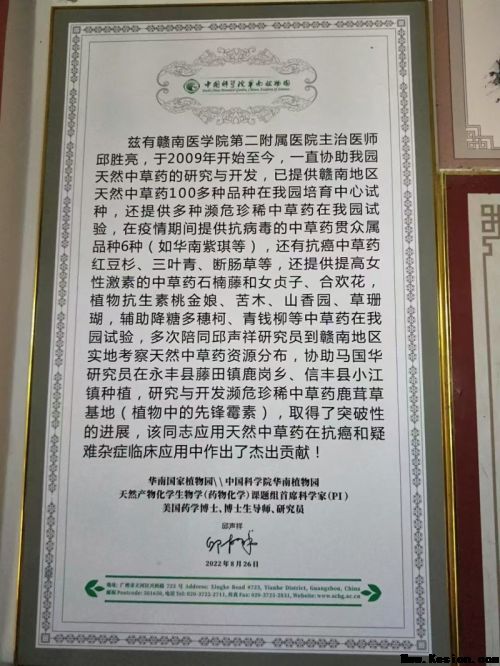 中国科学院华南植物园
South China Botanical Garden, Chinese Academy of Sciences
兹有赣南医学院第二附属医院主治医师
邱胜亮，于2009年开始至今，一直协助我园
天然中草药的研究与开发，已提供赣南地区
天然中草药100多种品种在我园培育中心试
种，还提供多种濒危珍稀中草药在我园试
验，在疫情期间提供抗病毒的中草药贯众属
品种6种（如华南紫琪等），还有抗癌中草药
红豆杉、三叶青、断肠草等，还提供提高女
性激素的中草药石楠藤和女贞子、合欢花，
植物抗生素桃金娘、苦木、山香园、草珊
瑚，辅助降糖多穗柯、青钱柳等中草药在我
园试验，多次陪同邱声祥研究员到赣南地区
实地考察天然中草药资源分布，协助马国华
研究员在永丰县藤田镇鹿岗乡、信丰县小江
镇种植，研究与开发濒危珍稀中草药鹿茸草
基地（植物中的先锋霉素），取得了突破性
的进展，该同志应用天然中草药在抗癌和疑
难杂症临床应用中作出了杰出贡献！
华南国家植物园\\中国科学院华南植物园
天然产物化学生物学(药物化学)课题组首席科学家(PI)
美国药学博士、博士生导师、研究员
邱声祥
2022年8月26日
地址: 广州市天河区兴科路 723 号 Address: Xingke Road #723, Tianhe District, Guangzhou, China
邮编 Postcode: 501650, 电话 Tel: 020-3722-2711, 传真 Fax: 020-3725-2831, Website: www.scbg.ac.cn
Www.Kesion.com